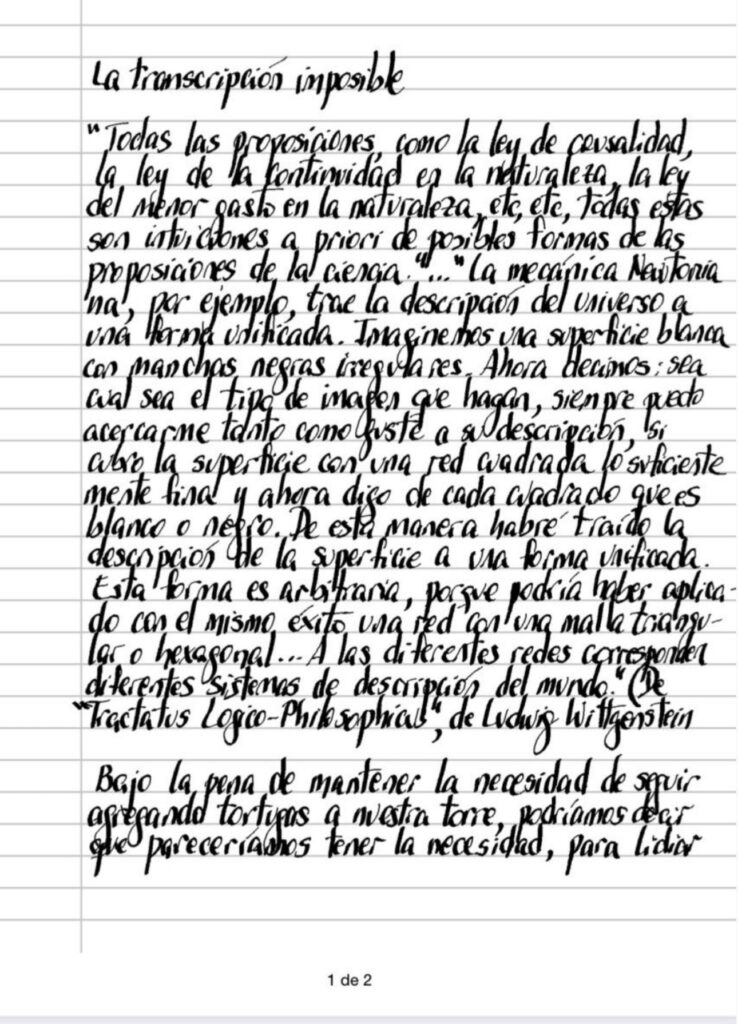 La transcripción imposible
"Todas las proposiciones, como la ley de causalidad,
la ley de la continuidad en la naturaleza, la ley
del menor gasto en la naturaleza, etc, etc, todas estas
son intuiciones a priori de posibles formas de las
proposiciones de la ciencia."..."La mecánica Newtonia
na, por ejemplo, trae la descripción del universo a
una forma unificada. Imaginemos una superficie blanca
con manchas negras irregulares. Ahora decimos: sea
cual sea el tipo de imagen que hagan, siempre puedo
acercarme tanto como guste a su descripción, si
cubro la superficie con una red cuadrada lo suficiente
mente fina y ahora digo de cada cuadrado que es
blanco o negro. De esta manera habré traído la
descripción de la superficie a una forma unificada.
Esta forma es arbitraria, porque podría haber aplica-
do con el mismo éxito una red con una malla triangu-
lar o hexagonal... A las diferentes redes corresponden
diferentes sistemas de descripción del mundo." (De
"Tractatus Logico-Philosophicus", de Ludwig Wittgenstein
Bajo la pena de mantener la necesidad de seguir
agregando tortugas a nuestra torre, podríamos decir
que pareceríamos tener la necesidad, para lidiar
1 de 2